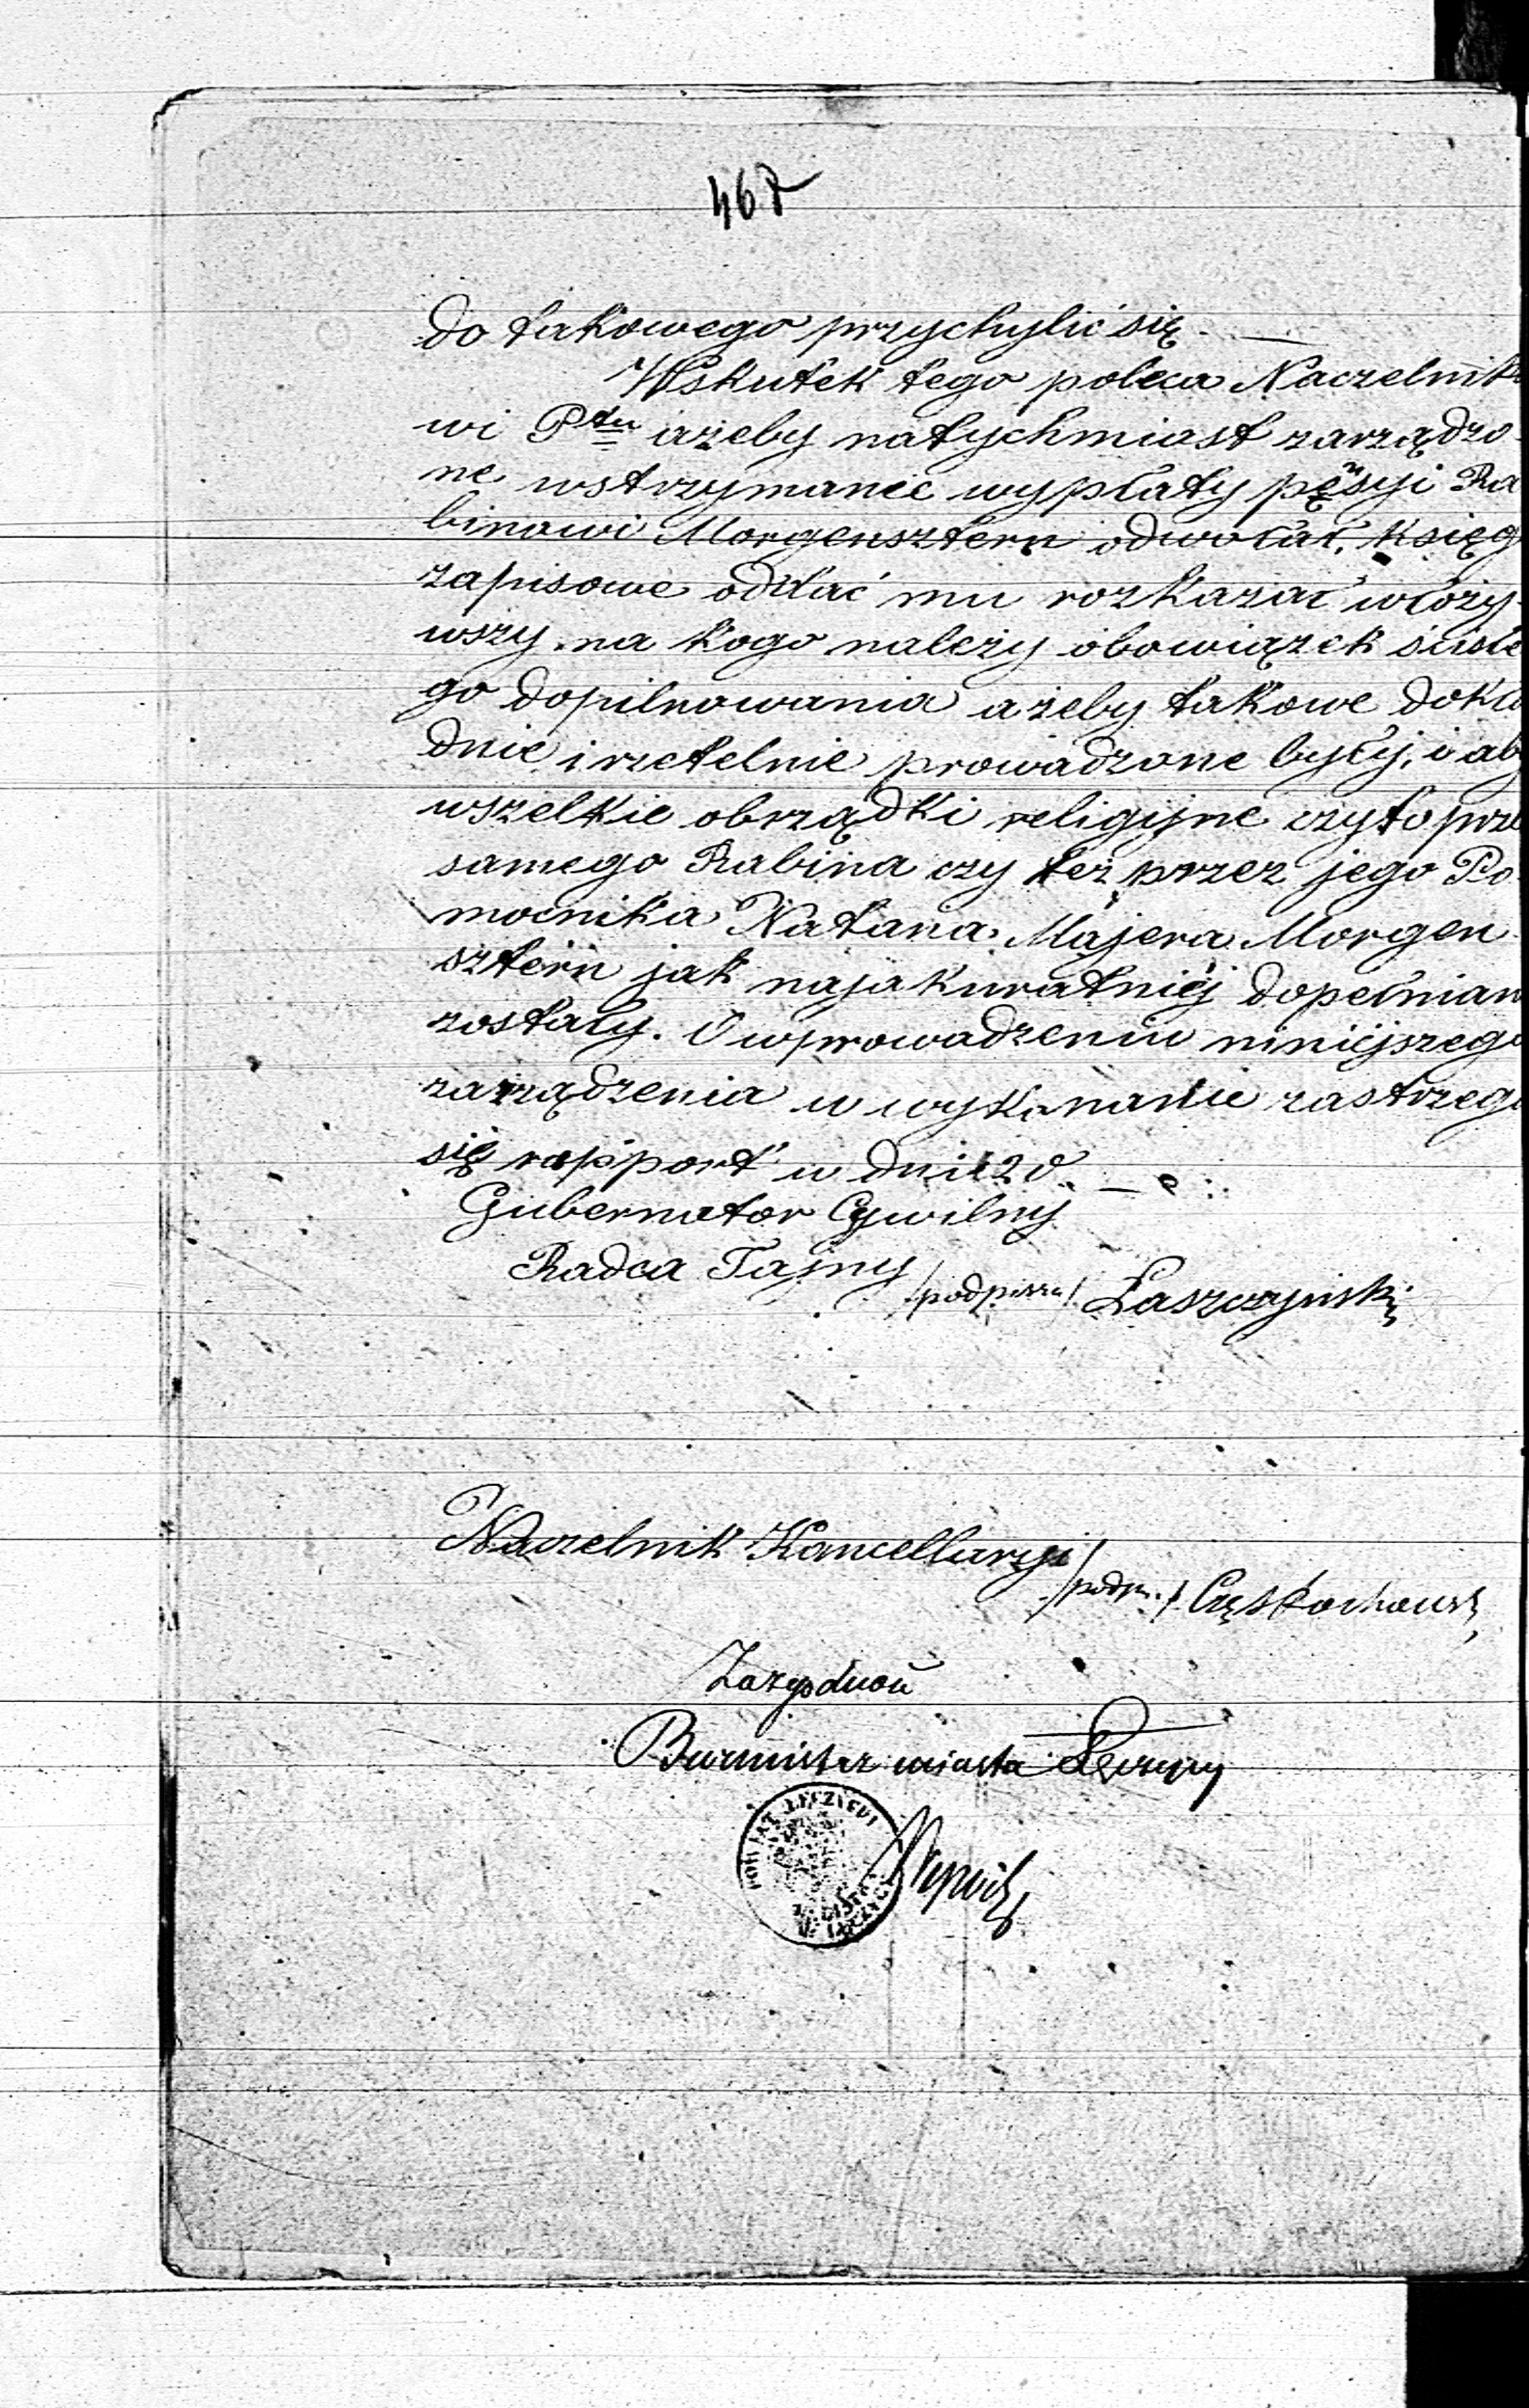 467
do takowego przychylić się. —
Wskutek tego poleca Naczelnik
wi Ptu ażeby natychmiast zarządzo
ne wstrzymanie wypłaty pęnsyi Ra
binowi Morgensztern odwołał, księg
zapisowe oddać mu rozkazał włoży
wszy na kogo należy obowiązek ścisłe
go dopilnowania ażeby takowe dokła
dnie i rzetelnie prowadzone były, i aby
wszelkie obrządki religijne czyto prze
samego Rabina czy też przez jego Po
mocnika Natana Majera Morgen
sztern jak najakuratniéj dopełnian
zostały. O wprowadzeniu niniejszego
zarządzenia w wykonanie zastrzega
się rapport w dni 20. —
Gubernator Cywilny
Radca Tajny /podpisał/ Łaszczyński
Naczelnik Kancellaryi /podp./ Częstochowsk
Za zgodność
Burmistrz miasta Łęczycy
POWIAT ŁĘCZYCKI